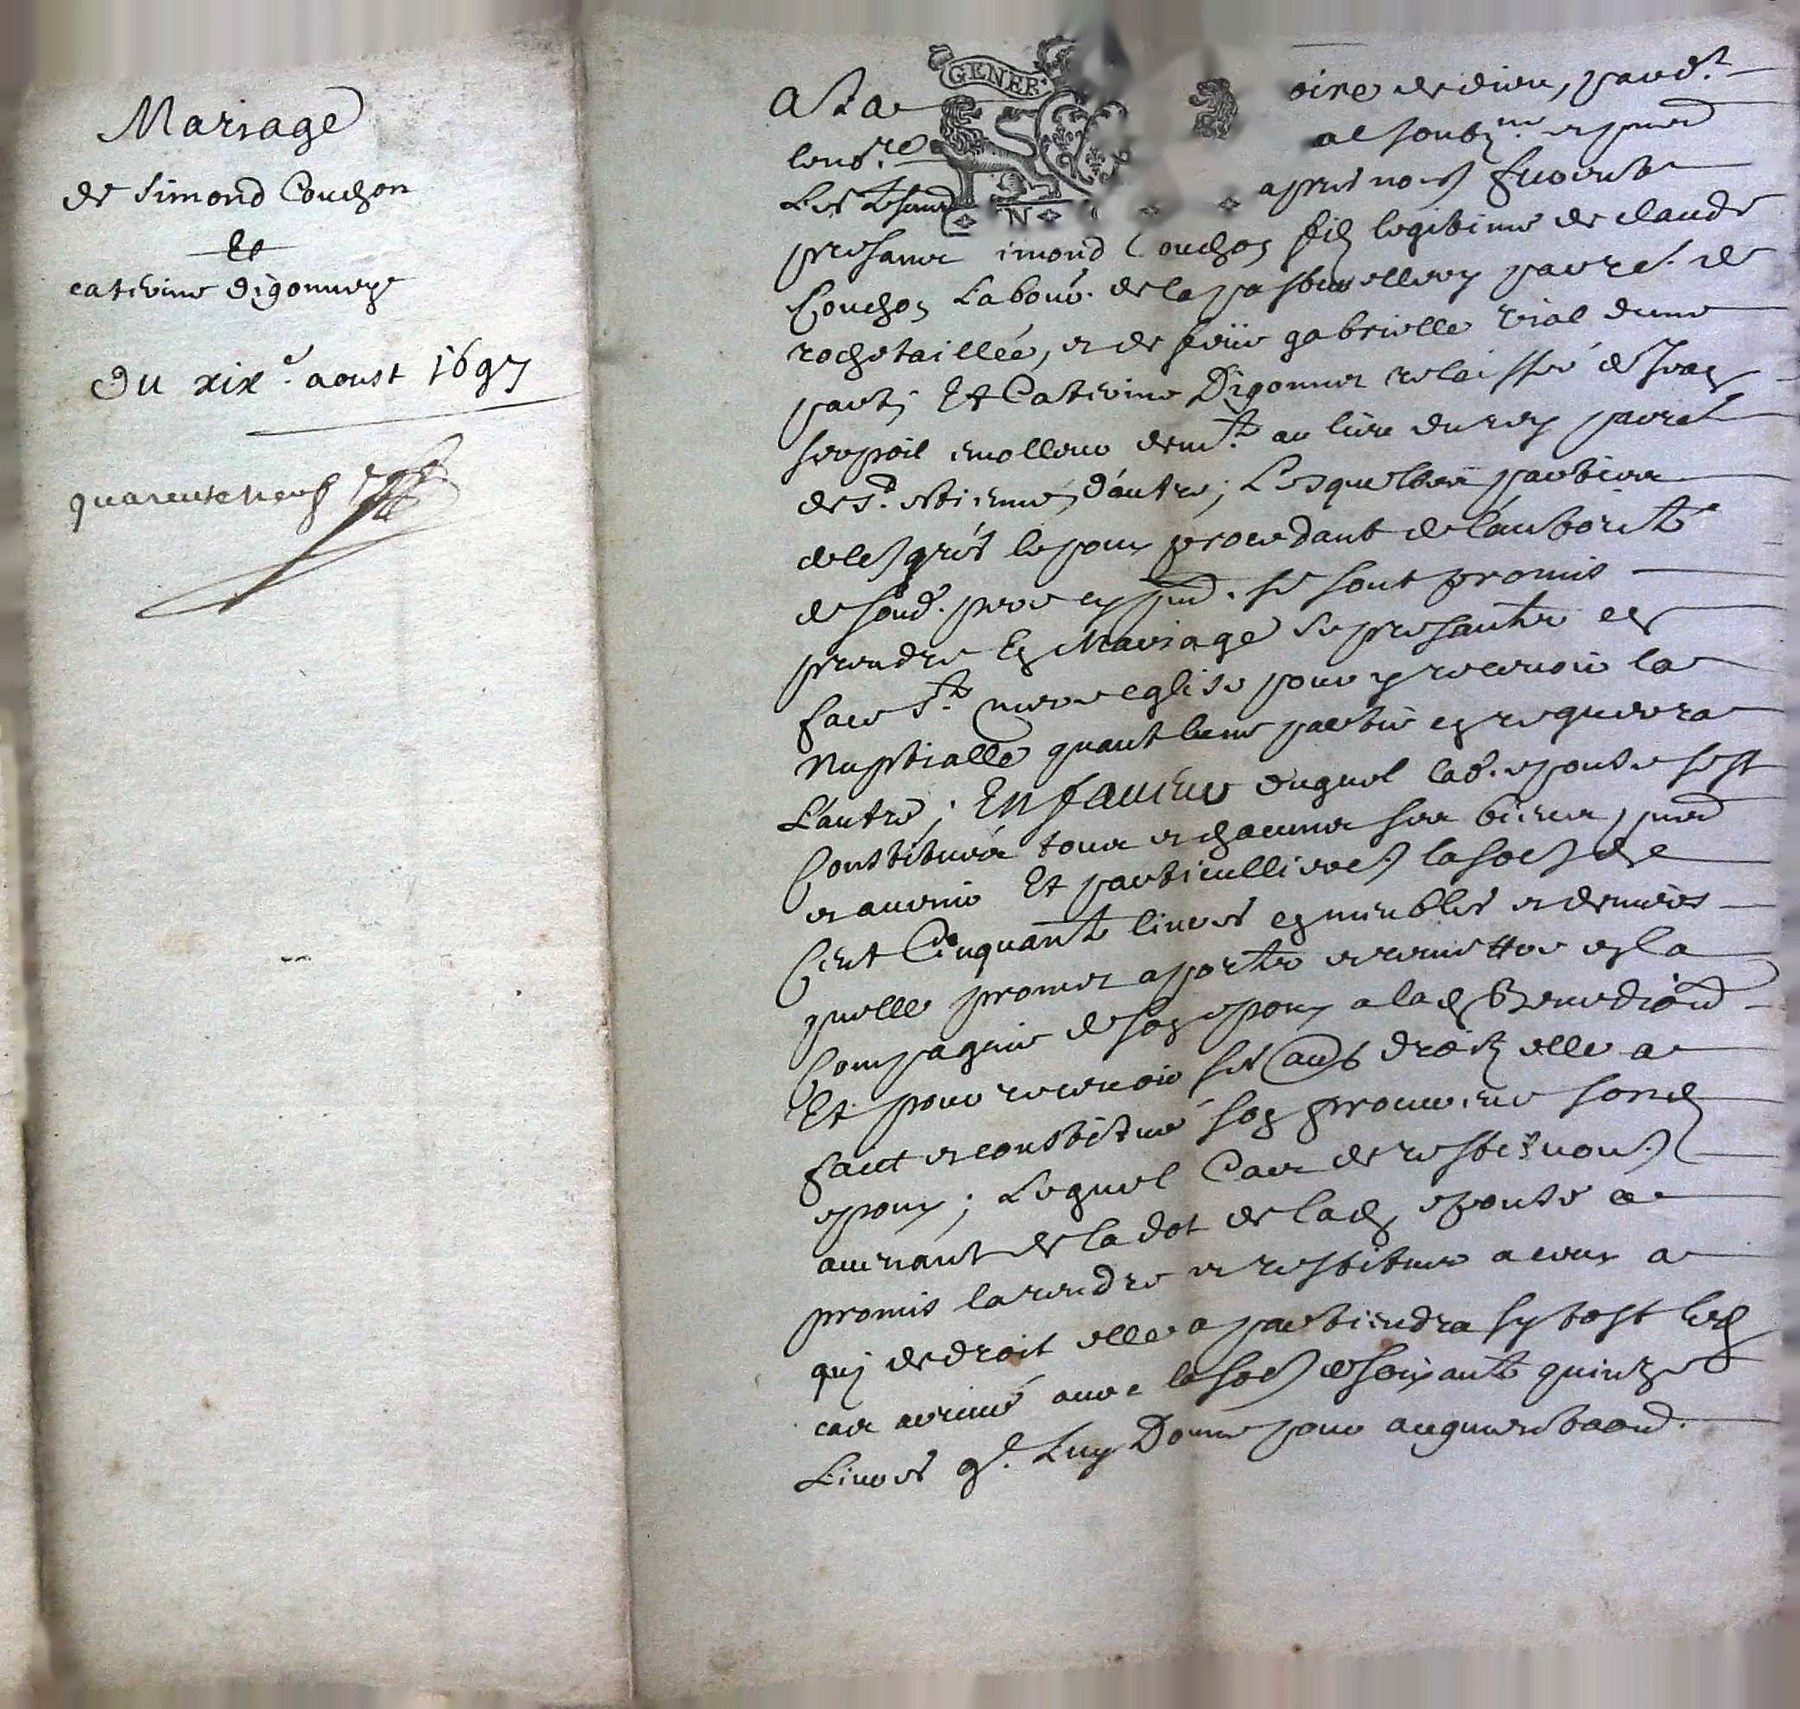 Mariage
de Simond Couchon
Et
caterine digonnez
Du xix.e aoust 1697
quarente neuf
GENER
N
A La oire de dieu, pard.t
les tesmo apres no.és furent
presans imond Couchon filz legitime de claude
Couchon Labour. de la parr.e de
rochetaillée, et de feüe gabrielle vial dune
part; Et Caterine Digonnet relaissée de Jean
emolleur dem.t au lieu parr.e
de S.t estienne, d'autre; Lesquelles parties
de leur grés lepoux procedant de l'authorité
de sond. pere icy pnt. se sont promis
prendre en Mariage se presanter en
face s.te mere eglise pour y recevoir la
Nuptialle quant lune partie en requerra
L'autre; En faveur duquel lad. epouse sest
Constituée tous et chacuns ses biens pnts
et avenir Et particullierem. la som. de
Cent Cinquante livres en meubles et deniers
quelle promet aporter et remettre en la
Compagnie de son epoux a lad. Benediction
Et pour recevoir ses autres droitz elle a
faict et constitué son procureur sond.
epoux; Lequel Cas de restitution
avenant de la dot de lad. epouse a
promis la rendre et restituer a ceux a
qui de droit elle apartiendra sytost led.
cas arrivé avec la som. de soixante quinze
Livres q.l Luy Donne pour augment aud.